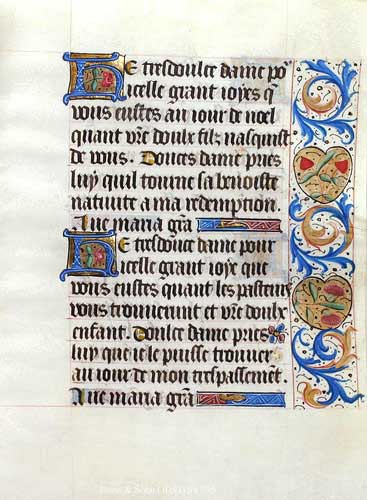 He tresdoulce dame po'
icelle grant ioyes q
vous eustes au iour de noel
quant vre doulx filz nasquist
de vous. Doulces dame pries
luy quil tourne sa benoiste
natiuite a ma redemption.
Aue maria gra
He tresdouce dame pour
icelle grant ioye que
vous eustes quant les pasteurs
vous trouuerent et vre doulx
enfant. Doulce dame pries
luy que ie le puisse trouuer
au iour de mon trespassement.
Aue maria gra